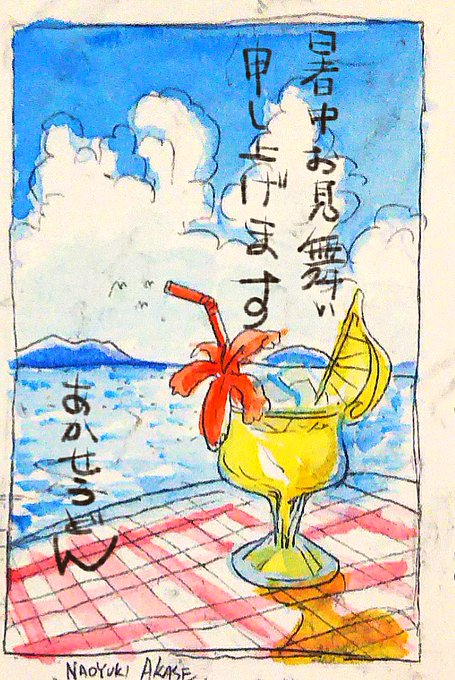 暑中お見舞い
申し上げます
あかせうどん
NAOYUKI AKASE